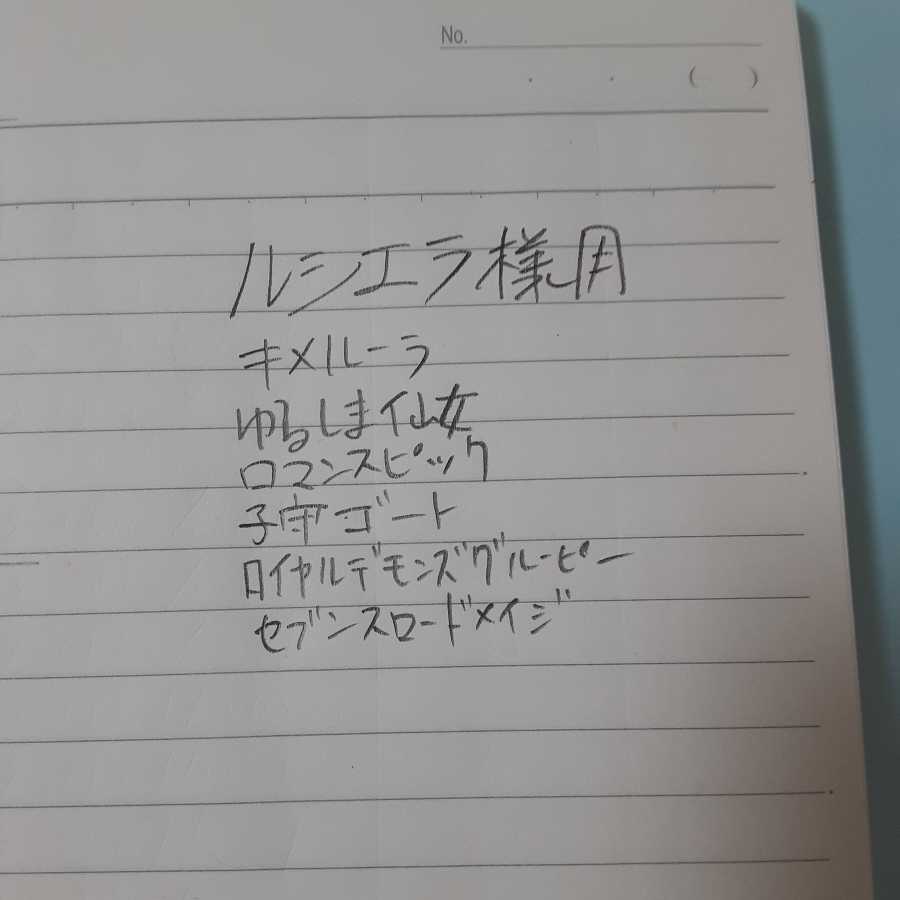 No.
( )
ルシエラ様用
キメルーラ
ゆるしま仙女
ロマンスピック
子守ゴート
ロイヤルデモンズグルーピー
セブンスロードメイジ